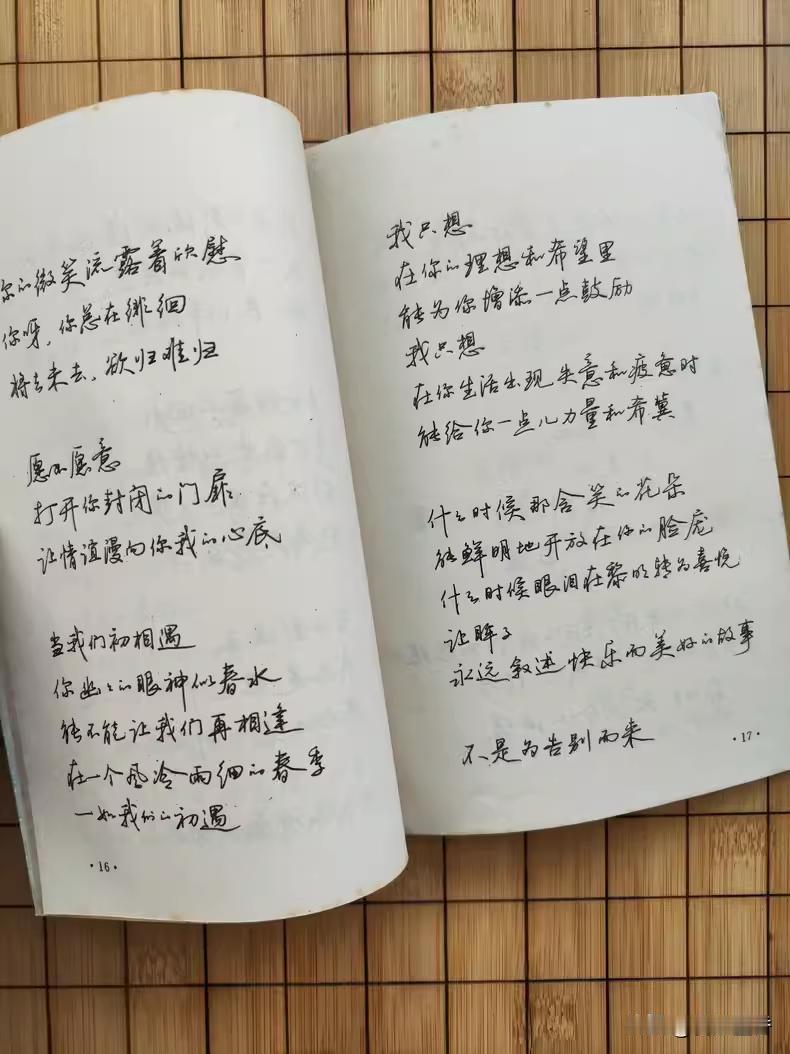 你的微笑流露着欣慰
你呀，你总在徘徊
将去未去，欲归难归
愿不愿意
打开你封闭的门扉
让情谊漫向你我的心底
当我们初相遇
你幽幽的眼神似春水
能不能让我们再相逢
在一个风冷雨细的春季
一如我们的初遇
·16·
我只想
在你的理想和希望里
能为你增添一点鼓励
我只想
在你生活出现失意和疲惫时
能给你一点儿力量和希冀
什么时候那含笑的花朵
能鲜明地开放在你的脸庞
什么时候眼泪在黎明转为喜悦
让眸子
永远叙述快乐而美好的故事
不是为告别而来
·17·